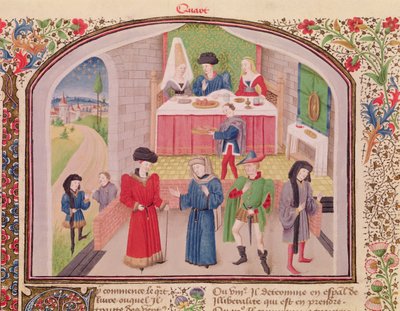 Quart
Cy commence le qrt
liure ouquel Il
Ou vme. Il determine en espal de
illiberalite qui est en prendre.